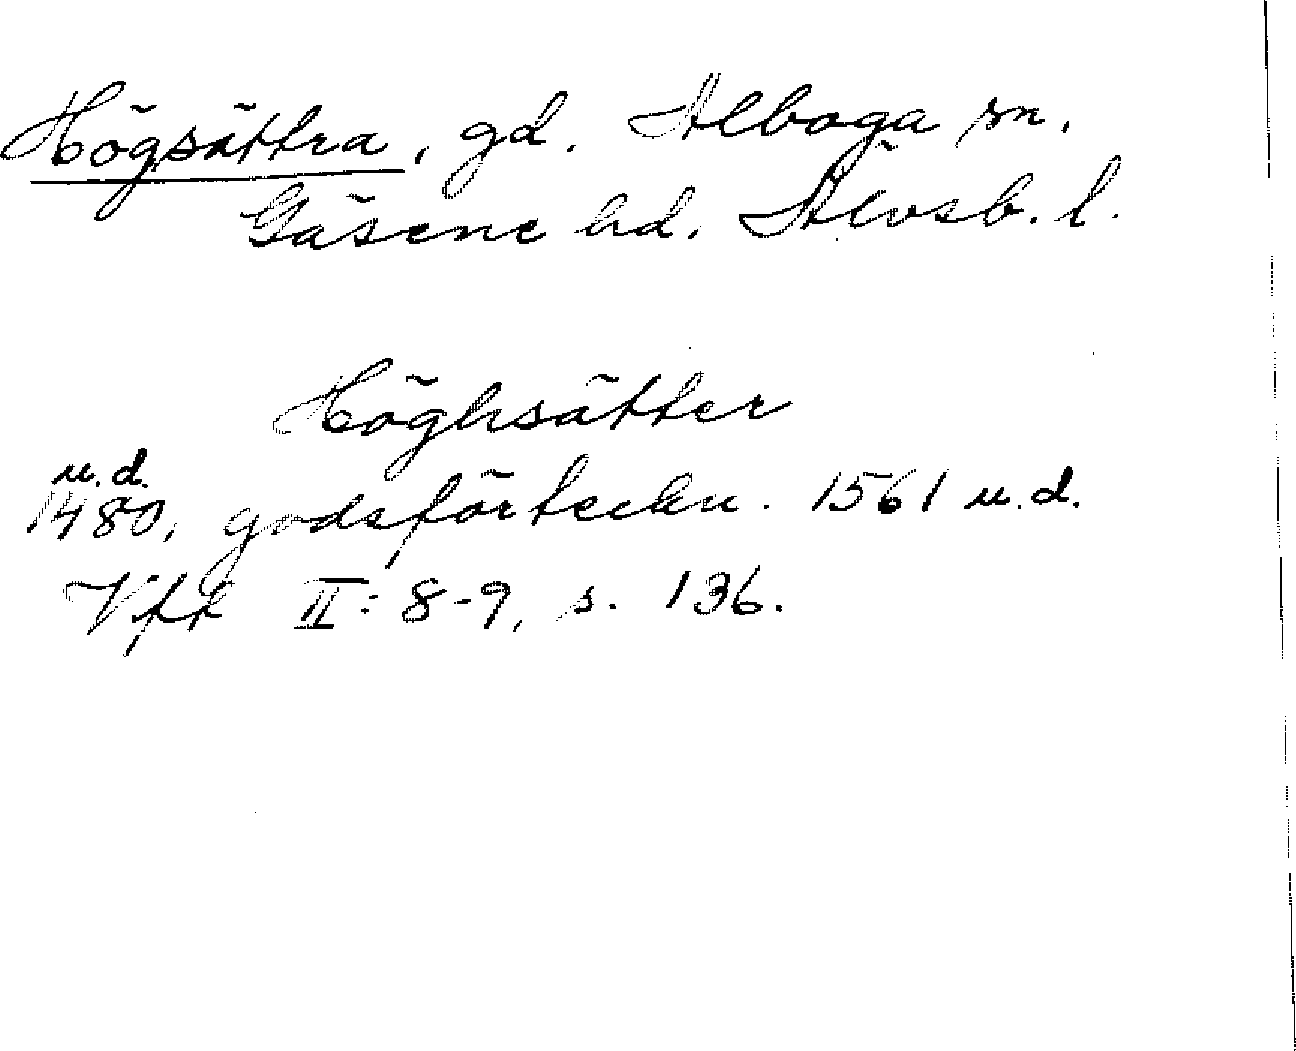 Högsättra, gd. Alboga sn.
Gäsene hd. Älvsb. l.
Höghsätter
u.d.
1480, godsförteckn. 1561 u.d.
Vfft II: 8-9, s. 136.